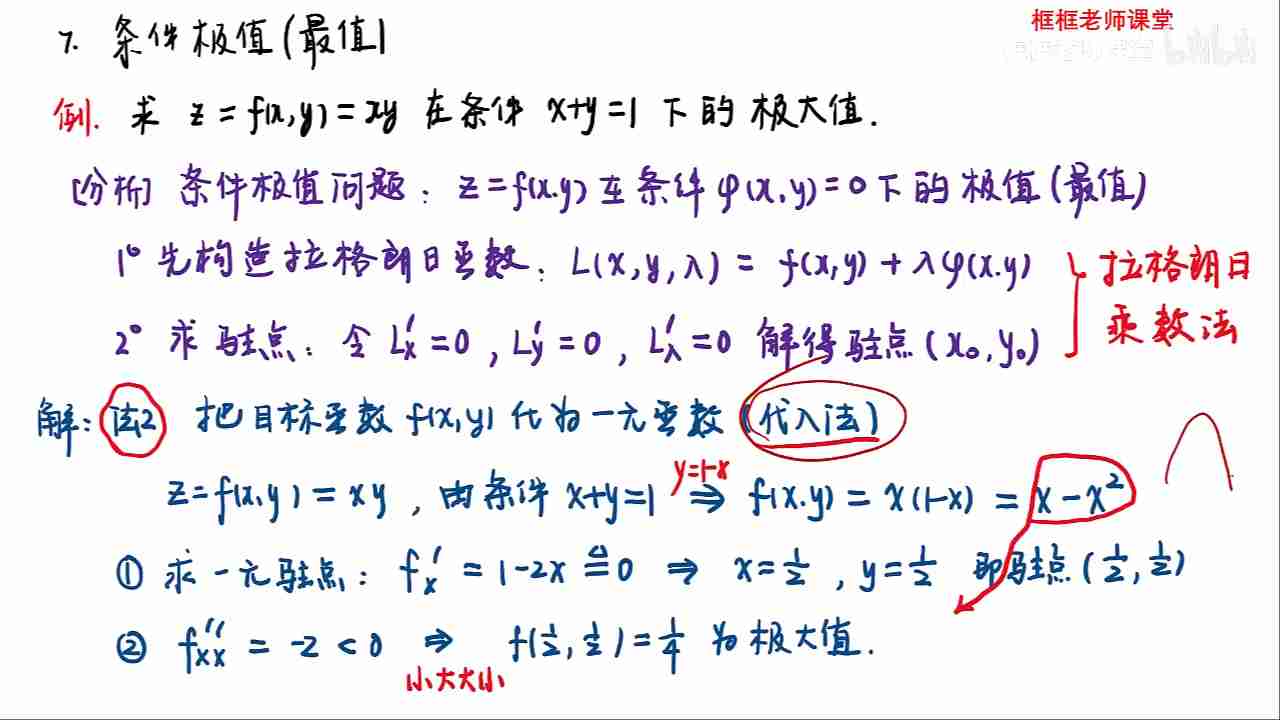 框框老师课堂
7. 条件极值(最值)
例. 求 z=f(x,y)=xy 在条件 x+y=1 下的极大值.
[分析] 条件极值问题: z=f(x.y)在条件φ(x,y)=0下的极值(最值)
1° 先构造拉格朗日函数: L(x,y,λ) = f(x,y)+λφ(x.y)
2° 求驻点: 令 L'x=0, L'y=0, L'λ=0 解得驻点(x₀,y₀)
拉格朗日
乘数法
解: 法2 把目标函数 f(x,y) 代为一元函数 (代入法)
z=f(x,y)=xy, 由条件 x+y=1 ⇒ f(x.y)=x(1-x)=x-x²
y=1-x
① 求一元驻点: f'x=1-2x≜0 ⇒ x=1/2, y=1/2 即驻点(1/2,1/2)
② f''xx=-2<0 ⇒ f(1/2,1/2)=1/4 为极大值.
小大大小